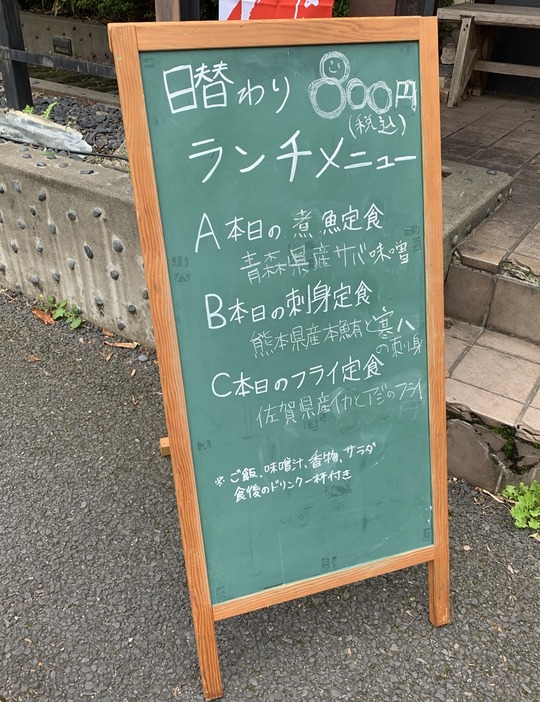 日替わり 800円
(税込)
ランチメニュー
A 本日の煮魚定食
青森県産サバ味噌
B 本日の刺身定食
熊本県産本鮪と寒八
の刺身
C 本日のフライ定食
佐賀県産イカとアジのフライ
※ご飯、味噌汁、香物、サラダ
食後のドリンク一杯付き